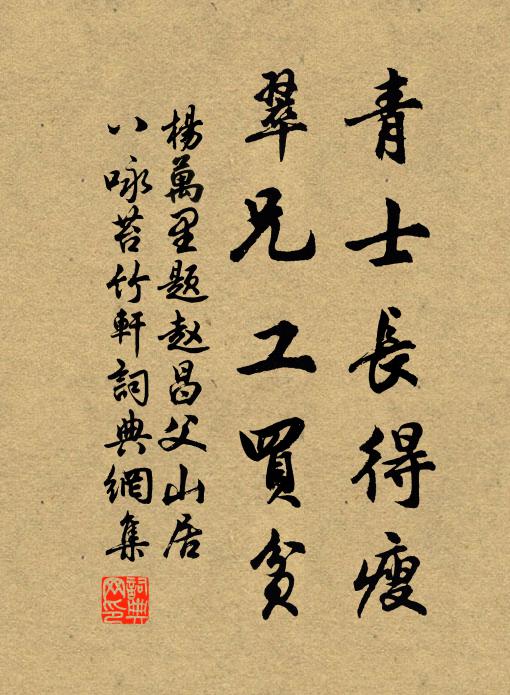 青士長得瘦
翠兄工買貧
楊萬里題赵昌父山居
八咏苔竹軒詞典網集
詞典
网印